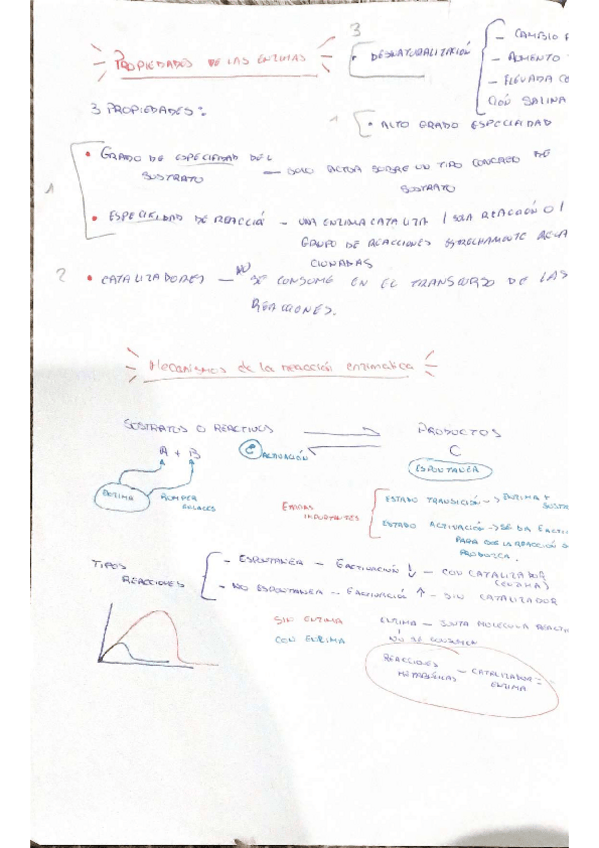 3
PROPIEDADES DE LAS ENZIMAS
• DESNATURALIZACIÓN
- CAMBIO
- AUMENTO
- ELEVADA CO
CIÓN SALINA
3 PROPIEDADES:
1
• ALTO GRADO ESPECIFIDAD
1
• GRADO DE ESPECIFIDAD DEL
SUSTRATO
- SOLO ACTUA SOBRE UN TIPO CONCRETO DE
SUSTRATO
• ESPECIFIDAD DE REACCIÓ - UNA ENZIMA CATALIZA 1 SOLA REACCIÓN O 1
GRUPO DE REACCIONES ESTRECHAMENTE RELA
CIONADAS
2 • CATALIZADORES - NO SE CONSUME EN EL TRANSCURSO DE LAS
REACCIONES.
Mecanismos de la reacción enzimática
SUSTRATOS O REACTIVOS
PRODUCTOS
A + B
E ACTIVACIÓN
C
ESPONTANEA
ENZIMA
ROMPER
ENLACES
ETAPAS
IMPORTANTES
ESTADO TRANSICIÓN -> ENZIMA +
SUSTR
ESTADO ACTIVACIÓN -> SE DA EACTI
PARA QUE LA REACCIÓN S
PRODUZCA.
TIPOS
REACCIONES
- ESPONTANEA - EACTIVACIÓN ↓ - CON CATALIZADOR
(ENZIMA)
- NO ESPONTANEA - EACTIVACIÓN ↑ - SIN CATALIZADOR
SIN ENZIMA
CON ENZIMA
ENZIMA - JUNTA MOLECULA REACTI
NO SE CONSUME
REACCIONES
METABÓLICAS
- CATALIZADOR =
ENZIMA